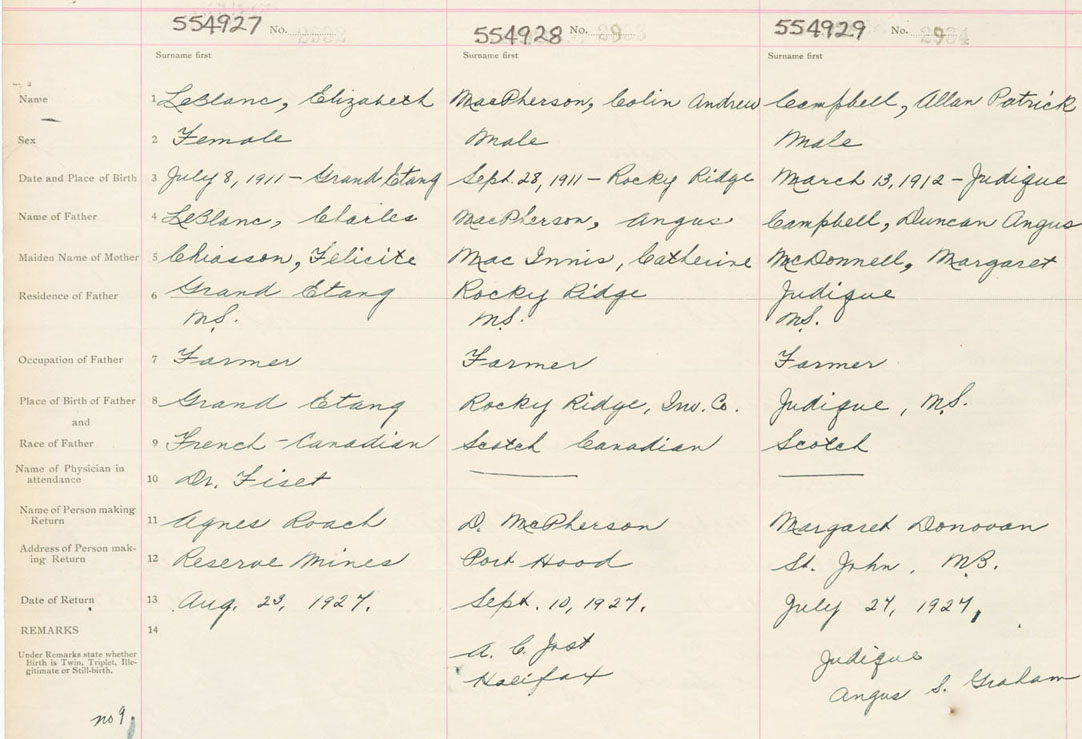 554927 No. 2932 554928 No. 2933 554929 No. 2934
Surname first Surname first Surname first
Name 1 LeBlanc, Elizabeth MacPherson, Colin Andrew Campbell, Allan Patrick
Sex 2 Female Male Male
Date and Place of Birth 3 July 8, 1911 - Grand Etang Sept. 28, 1911 - Rocky Ridge March 13, 1912 - Judique
Name of Father 4 LeBlanc, Charles MacPherson, Angus Campbell, Duncan Angus
Maiden Name of Mother 5 Chiasson, Felicite Mac Innis, Catherine McDonnell, Margaret
Residence of Father 6 Grand Etang Rocky Ridge Judique
N.S. N.S. N.S.
Occupation of Father 7 Farmer Farmer Farmer
Place of Birth of Father 8 Grand Etang Rocky Ridge, Inv. Co. Judique, N.S.
and
Race of Father 9 French-Canadian Scotch Canadian Scotch
Name of Physician in
attendance 10 Dr. Fiset
Name of Person making
Return 11 Agnes Roach D. McPherson Margaret Donovan
Address of Person mak-
ing Return 12 Reserve Mines Port Hood St. John, N.B.
Date of Return 13 Aug. 23, 1927. Sept. 10, 1927. July 27, 1927,
REMARKS 14
Under Remarks state whether
Birth is Twin, Triplet, Ille-
gitimate or Still-birth.
A. C. Jost
Halifax
Judique
Angus S. Graham
no 9.